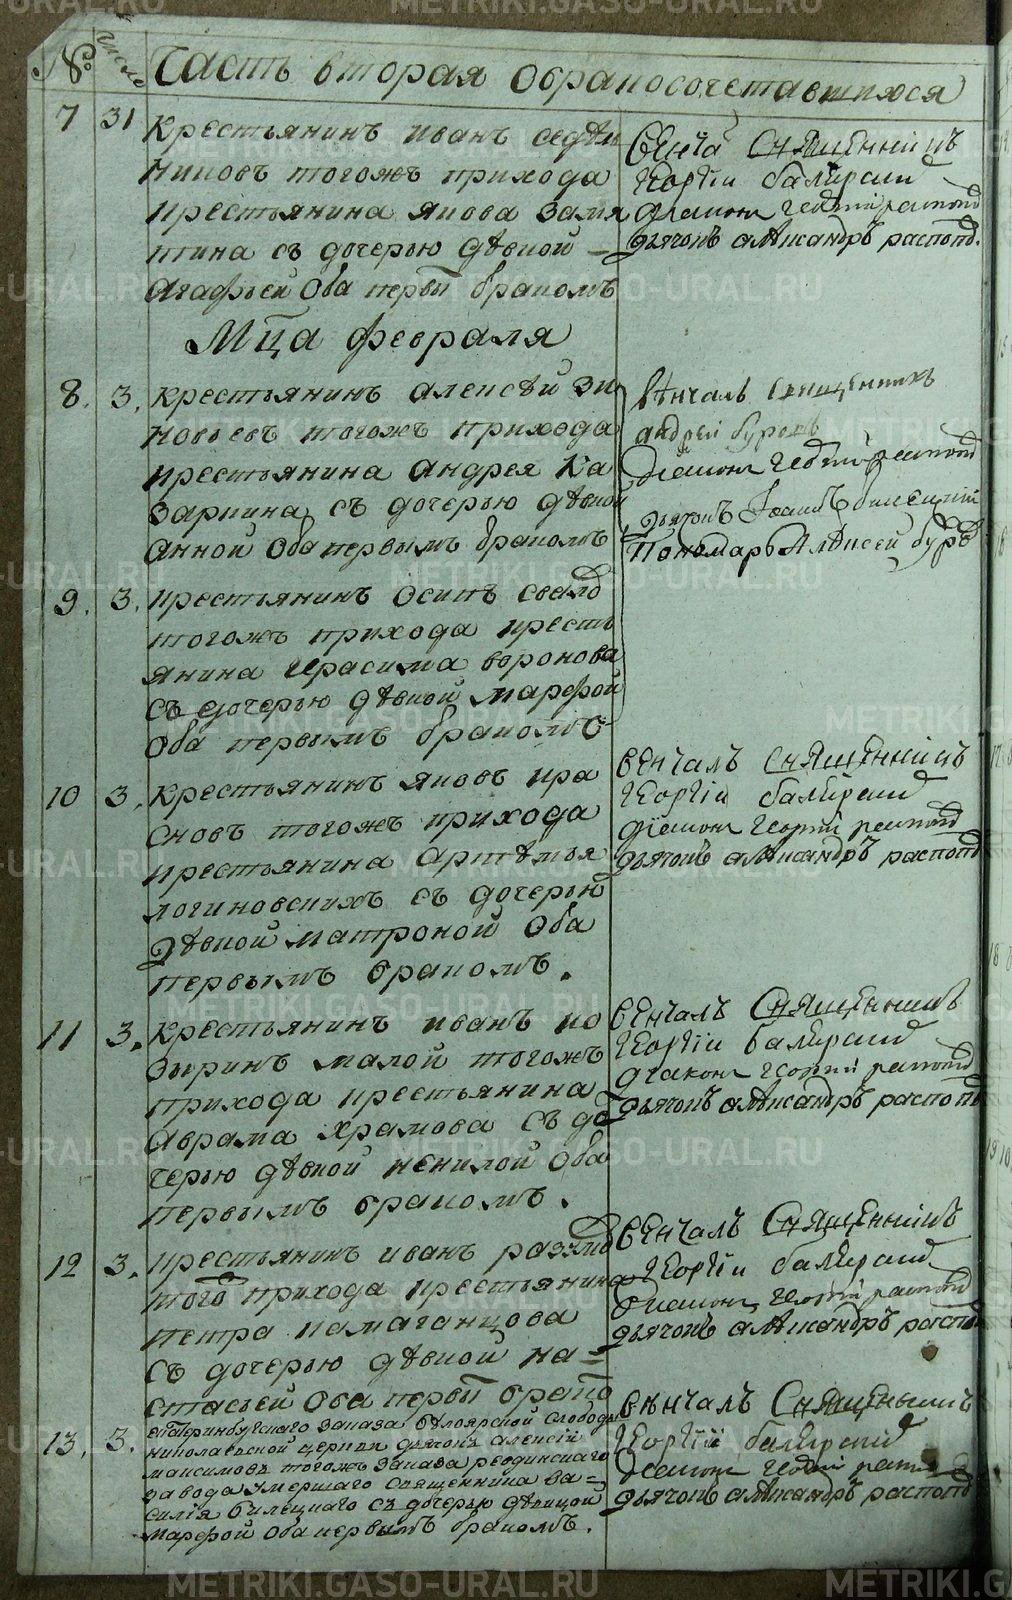 № число Часть вторая обракосочетавшихся
7 31 крестьянинъ иванъ седѣл
никовъ тогожъ прихода
крестьянина якова замя
тина съ дочерью дѣвкой
Агафьей Оба первы бракомъ
венча Священникъ
георгіи
діаконъ георгій
дьячокъ алѣксандръ распоп.
Мца февраля
8. 3. крестьянинъ алексѣй зи
новьевъ тогожъ прихода
крестьянина андрея Ка
заркина съ дочерью дѣвкой
Анной Оба первымъ бракомъ
вѣнчалъ священникъ
андрей буровъ
Діаконъ георгій
дьячокъ Іоаннъ
Пономарь Алѣксей буро
9. 3. крестьянинъ осипъ
тогожъ прихода кресть
янина герасима воронова
съ дочерью дѣвкой марфой
Оба первымъ бракомъ
10 3. крестьянинъ яковъ кра
сновъ тогожъ прихода
крестьянина артемья
логиновскихъ съ дочерью
Дѣвкой матроной Оба
первымъ бракомъ.
венчалъ Священникъ
георгіи
діаконъ георгій
дьячокъ алѣксандръ распоп
11 3. крестьянинъ иванъ ко
зыринъ малой тогожъ
прихода крестьянина
Аврама храмова съ до
черью дѣвкой ненилой Оба
первымъ бракомъ.
венчалъ Священникъ
георгіи
діаконъ георгій
дьячокъ алѣксандръ распоп
12 3. крестьянинъ иванъ
того прихода крестьянина
петра камаганцова
съ дочерью дѣвкой на=
стасьей Оба первы брако
венчалъ Священникъ
георгіи
Діаконъ георгій
дьячокъ алѣксандръ распо
13. 3. екатеринбугскаго заказа белоярской слободы
николаевской церкви дьячокъ алексій
максимовъ тогожъ заказа ревдинскаго
завода умершаго священника ва=
силія билецкаго съ дочерью дѣвицой
марфой Оба первымъ бракомъ.
вѣнчалъ Священникъ
георгіи
Діаконъ георгій
дьячокъ алѣксандръ распоп
METRIKI.GASO-URAL.RU